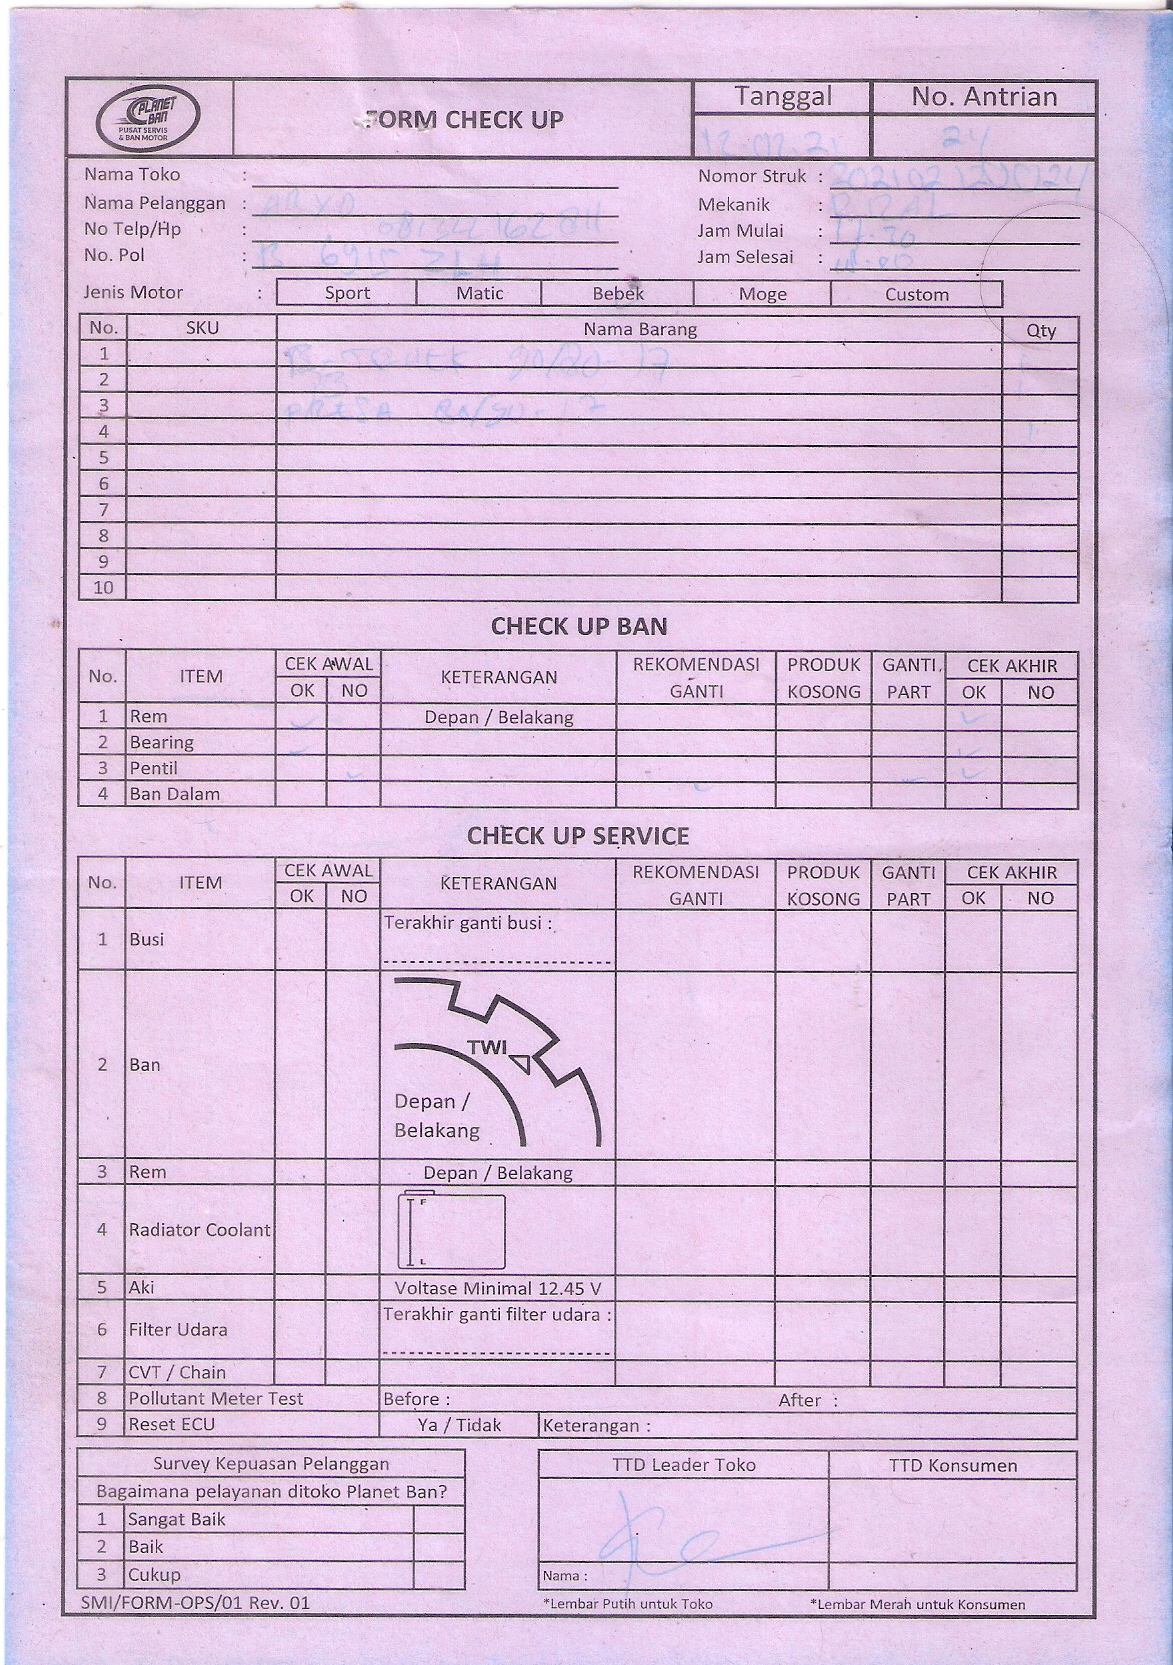 PLANET BAN
PUSAT SERVIS & BAN MOTOR
FORM CHECK UP
Tanggal No. Antrian
24
Nama Toko :
Nomor Struk :
Nama Pelanggan :
Mekanik :
No Telp/Hp :
Jam Mulai : 17.30
No. Pol : B 6915
Jam Selesai :
Jenis Motor : Sport Matic Bebek Moge Custom
No. SKU Nama Barang Qty
1 90/80 17
2
3
4
5
6
7
8
9
10
CHECK UP BAN
No. ITEM CEK AWAL KETERANGAN REKOMENDASI GANTI PRODUK KOSONG GANTI PART CEK AKHIR
OK NO OK NO
1 Rem Depan / Belakang
2 Bearing
3 Pentil
4 Ban Dalam
CHECK UP SERVICE
No. ITEM CEK AWAL KETERANGAN REKOMENDASI GANTI PRODUK KOSONG GANTI PART CEK AKHIR
OK NO OK NO
1 Busi Terakhir ganti busi :
2 Ban TWI Depan / Belakang
3 Rem Depan / Belakang
4 Radiator Coolant F L
5 Aki Voltase Minimal 12.45 V
6 Filter Udara Terakhir ganti filter udara :
7 CVT / Chain
8 Pollutant Meter Test Before : After :
9 Reset ECU Ya / Tidak Keterangan :
Survey Kepuasan Pelanggan
Bagaimana pelayanan ditoko Planet Ban?
1 Sangat Baik
2 Baik
3 Cukup
TTD Leader Toko TTD Konsumen
Nama :
SMI/FORM-OPS/01 Rev. 01
*Lembar Putih untuk Toko *Lembar Merah untuk Konsumen